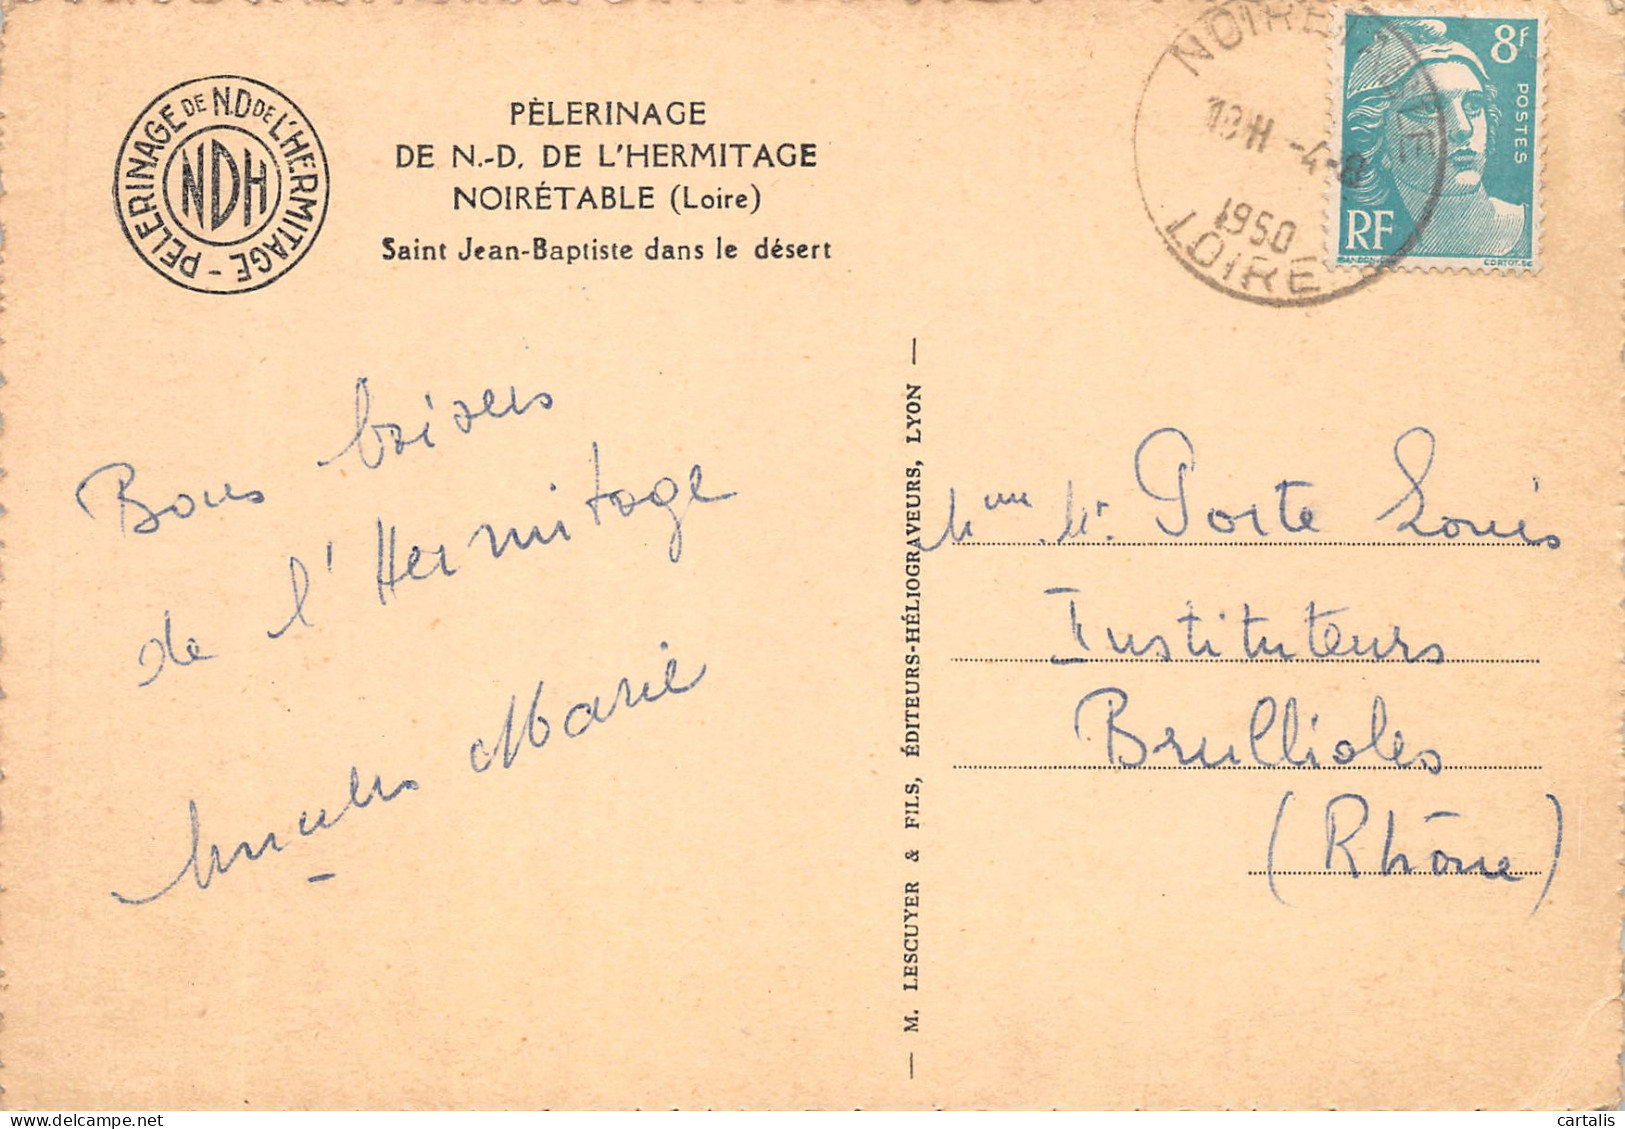 PÈLERINAGE DE N.D DE L'HERMITAGE -
NDH
PÈLERINAGE
DE N.-D. DE L'HERMITAGE
NOIRÉTABLE (Loire)
Saint Jean-Baptiste dans le désert
NOIRETABLE
18H -4-8
1950
LOIRE
8F
POSTES
RF
GANDON
CORTOT. SC
Bons baisers
de l'Hermitage
Marie
— M. LESCUYER & FILS, ÉDITEURS-HÉLIOGRAVEURS, LYON —
Mme Mr. Porte Louis
Instituteurs
Brullioles
(Rhône)
cartalis
www.delcampe.net